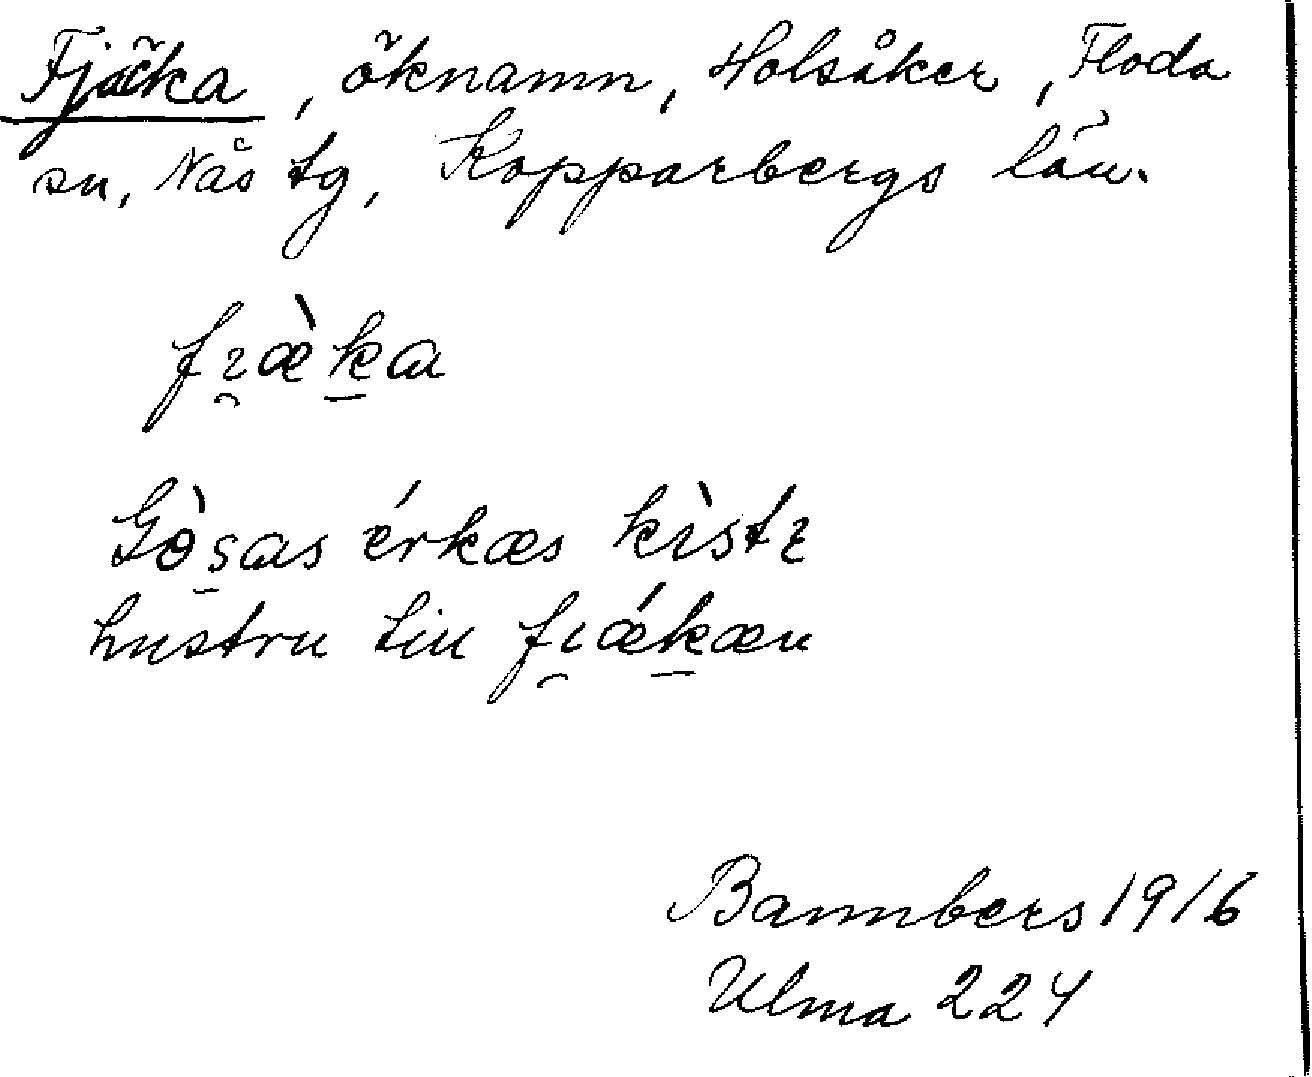 Fjäka, öknamn, Holsåker, Floda
sn, Nås tg, Kopparbergs län.
fɪæ̀ka
Gòsas érkæs kìstɪ
hustru tiu fɪǽkæn
Bannbers 1916
Ulma 224